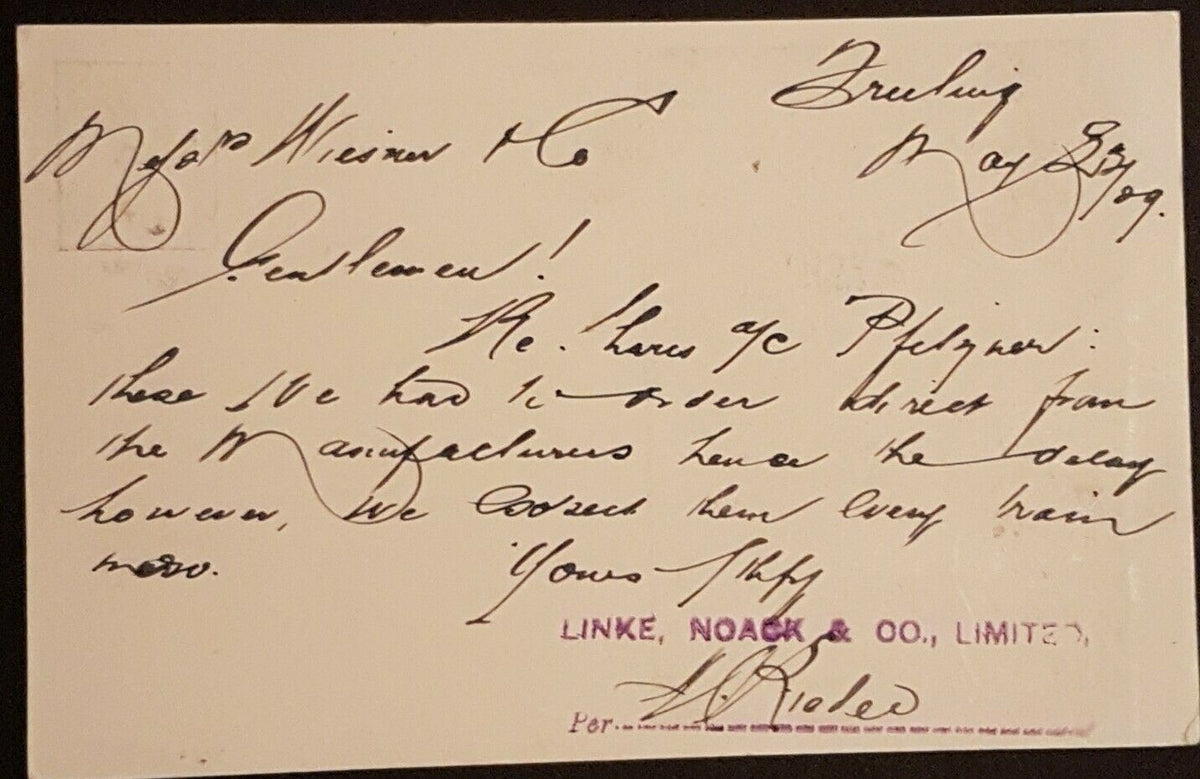 Freeling
Messrs Wiesner & Co
May 23/09.
Gentlemen!
Re. a/c Pfitzner:
these We had to order direct from
the Manufacturers hence the delay
however, we expect them every train
now.
Yours Thfly
LINKE, NOACK & CO., LIMITED,
Per.